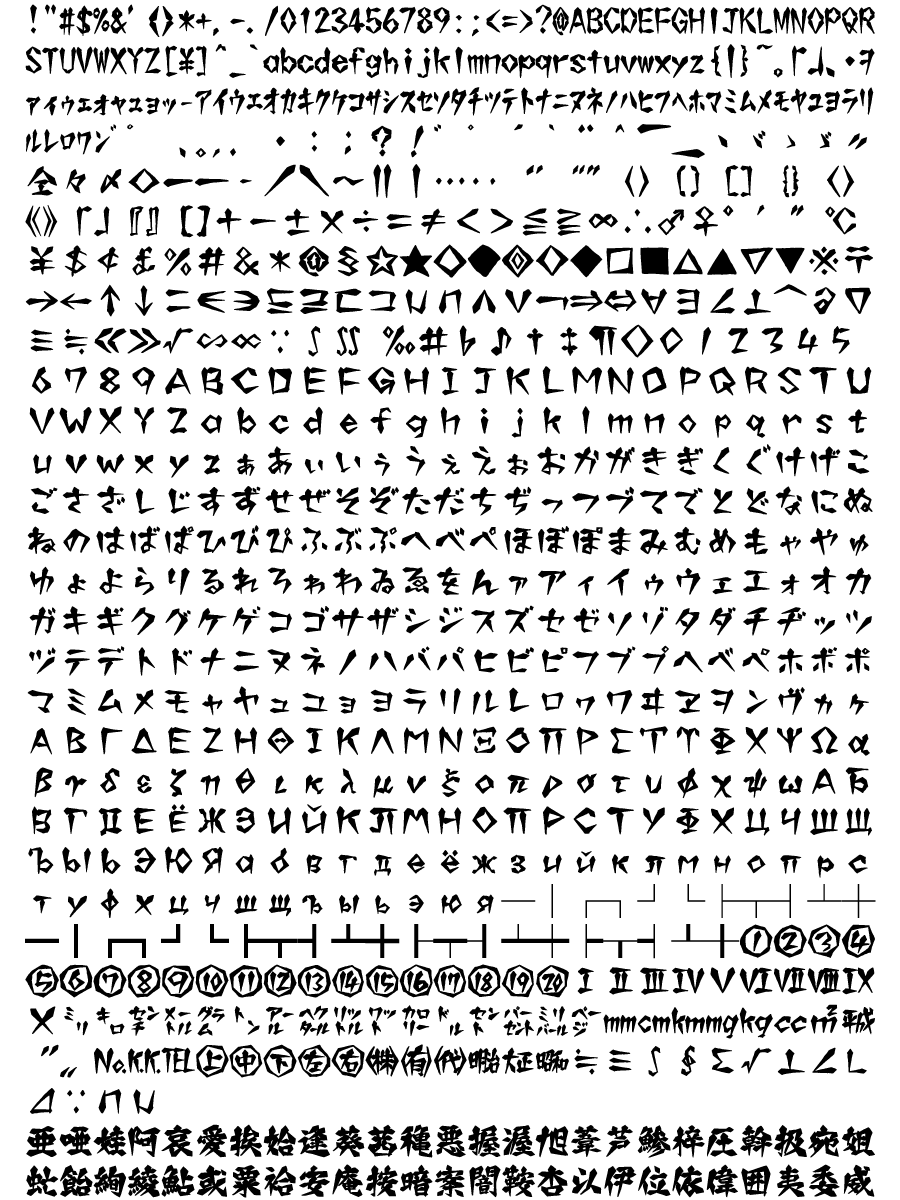 !"#$%&'()*+,-./0123456789:;<=>?@ABCDEFGHIJKLMNOPQR
STUVWXYZ[¥]^_`abcdefghijklmnopqrstuvwxyz{|}~。「」、・ヲ
ァィゥェォャュョッーアイウエオカキクケコサシスセソタチツテトナニヌネノハヒフヘホマミムメモヤユヨラリ
ルレロワン゛゜ 、。,.・:;?!゛゜´`¨^‾_ヽヾゝゞ〃
仝々〆〇ー—‐/\~‖|…‥‘’“”()〔〕[]{}〈〉
《》「」『』【】+-±×÷=≠<>≦≧∞∴♂♀°′″℃
¥$¢£%#&*@§☆★○●◎◇◆□■△▲▽▼※〒
→←↑↓〓∈∋⊆⊇⊂⊃∪∩∧∨¬⇒⇔∀∃∠⊥⌒∂∇
≡≒≪≫√∽∝∵∫∬‰♯♭♪†‡¶◯012345
6789ABCDEFGHIJKLMNOPQRSTU
VWXYZabcdefghijklmnopqrst
uvwxyzぁあぃいぅうぇえぉおかがきぎくぐけげこ
ごさざしじすずせぜそぞただちぢっつづてでとどなにぬ
ねのはばぱひびぴふぶぷへべぺほぼぽまみむめもゃやゅ
ゆょよらりるれろゎわゐゑをんァアィイゥウェエォオカ
ガキギクグケゲコゴサザシジスズセゼソゾタダチヂッツ
ヅテデトドナニヌネノハバパヒビピフブプヘベペホボポ
マミムメモャヤュユョヨラリルレロヮワヰヱヲンヴヵヶ
ΑΒΓΔΕΖΗΘΙΚΛΜΝΞΟΠΡΣΤΥΦΧΨΩα
βγδεζηθικλμνξοπρστυφχψωАБ
ВГДЕЁЖЗИЙКЛМНОПРСТУФХЦЧШЩ
ЪЫЬЭЮЯабвгдеёжзийклмнопрс
туфхцчшщъыьэюя─│┌┐┘└├┬┤┴┼
━┃┏┓┛┗┣┳┫┻╋┠┯┨┷┿┝┰┥┸╂①②③④
⑤⑥⑦⑧⑨⑩⑪⑫⑬⑭⑮⑯⑰⑱⑲⑳ⅠⅡⅢⅣⅤⅥⅦⅧⅨⅩ
㍉㌔㌢㍍㌘㌧㌃㌶㍑㍗㌍㌦㌣㌫㍊㌻㎜㎝㎞㎎㎏㏄㎡㍻
〝〟№㏍℡㊤㊥㊦㊧㊨㈱㈲㈹㍾㍽㍼≒≡∫∮∑√⊥∠∟
⊿∵∩∪
亜唖娃阿哀愛挨姶逢葵茜穐悪握渥旭葦芦鯵梓圧斡扱宛姐
虻飴絢綾鮎或粟袷安庵按暗案闇鞍杏以伊位依偉囲夷委威